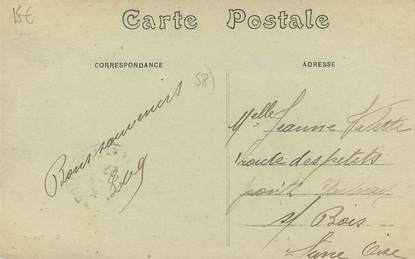 15€
Carte Postale
CORRESPONDANCE
ADRESSE
58)
Bons souvenirs
Melle Jeanne
route des petits
ponts
s/ Bois
Seine Oise